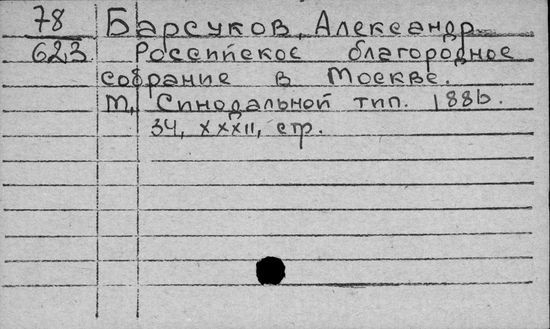 78 Барсуков, Александр
623 Российское благородное
собрание в Москве.
М, Синодальной тип. 1886.
34, XXXII, стр.